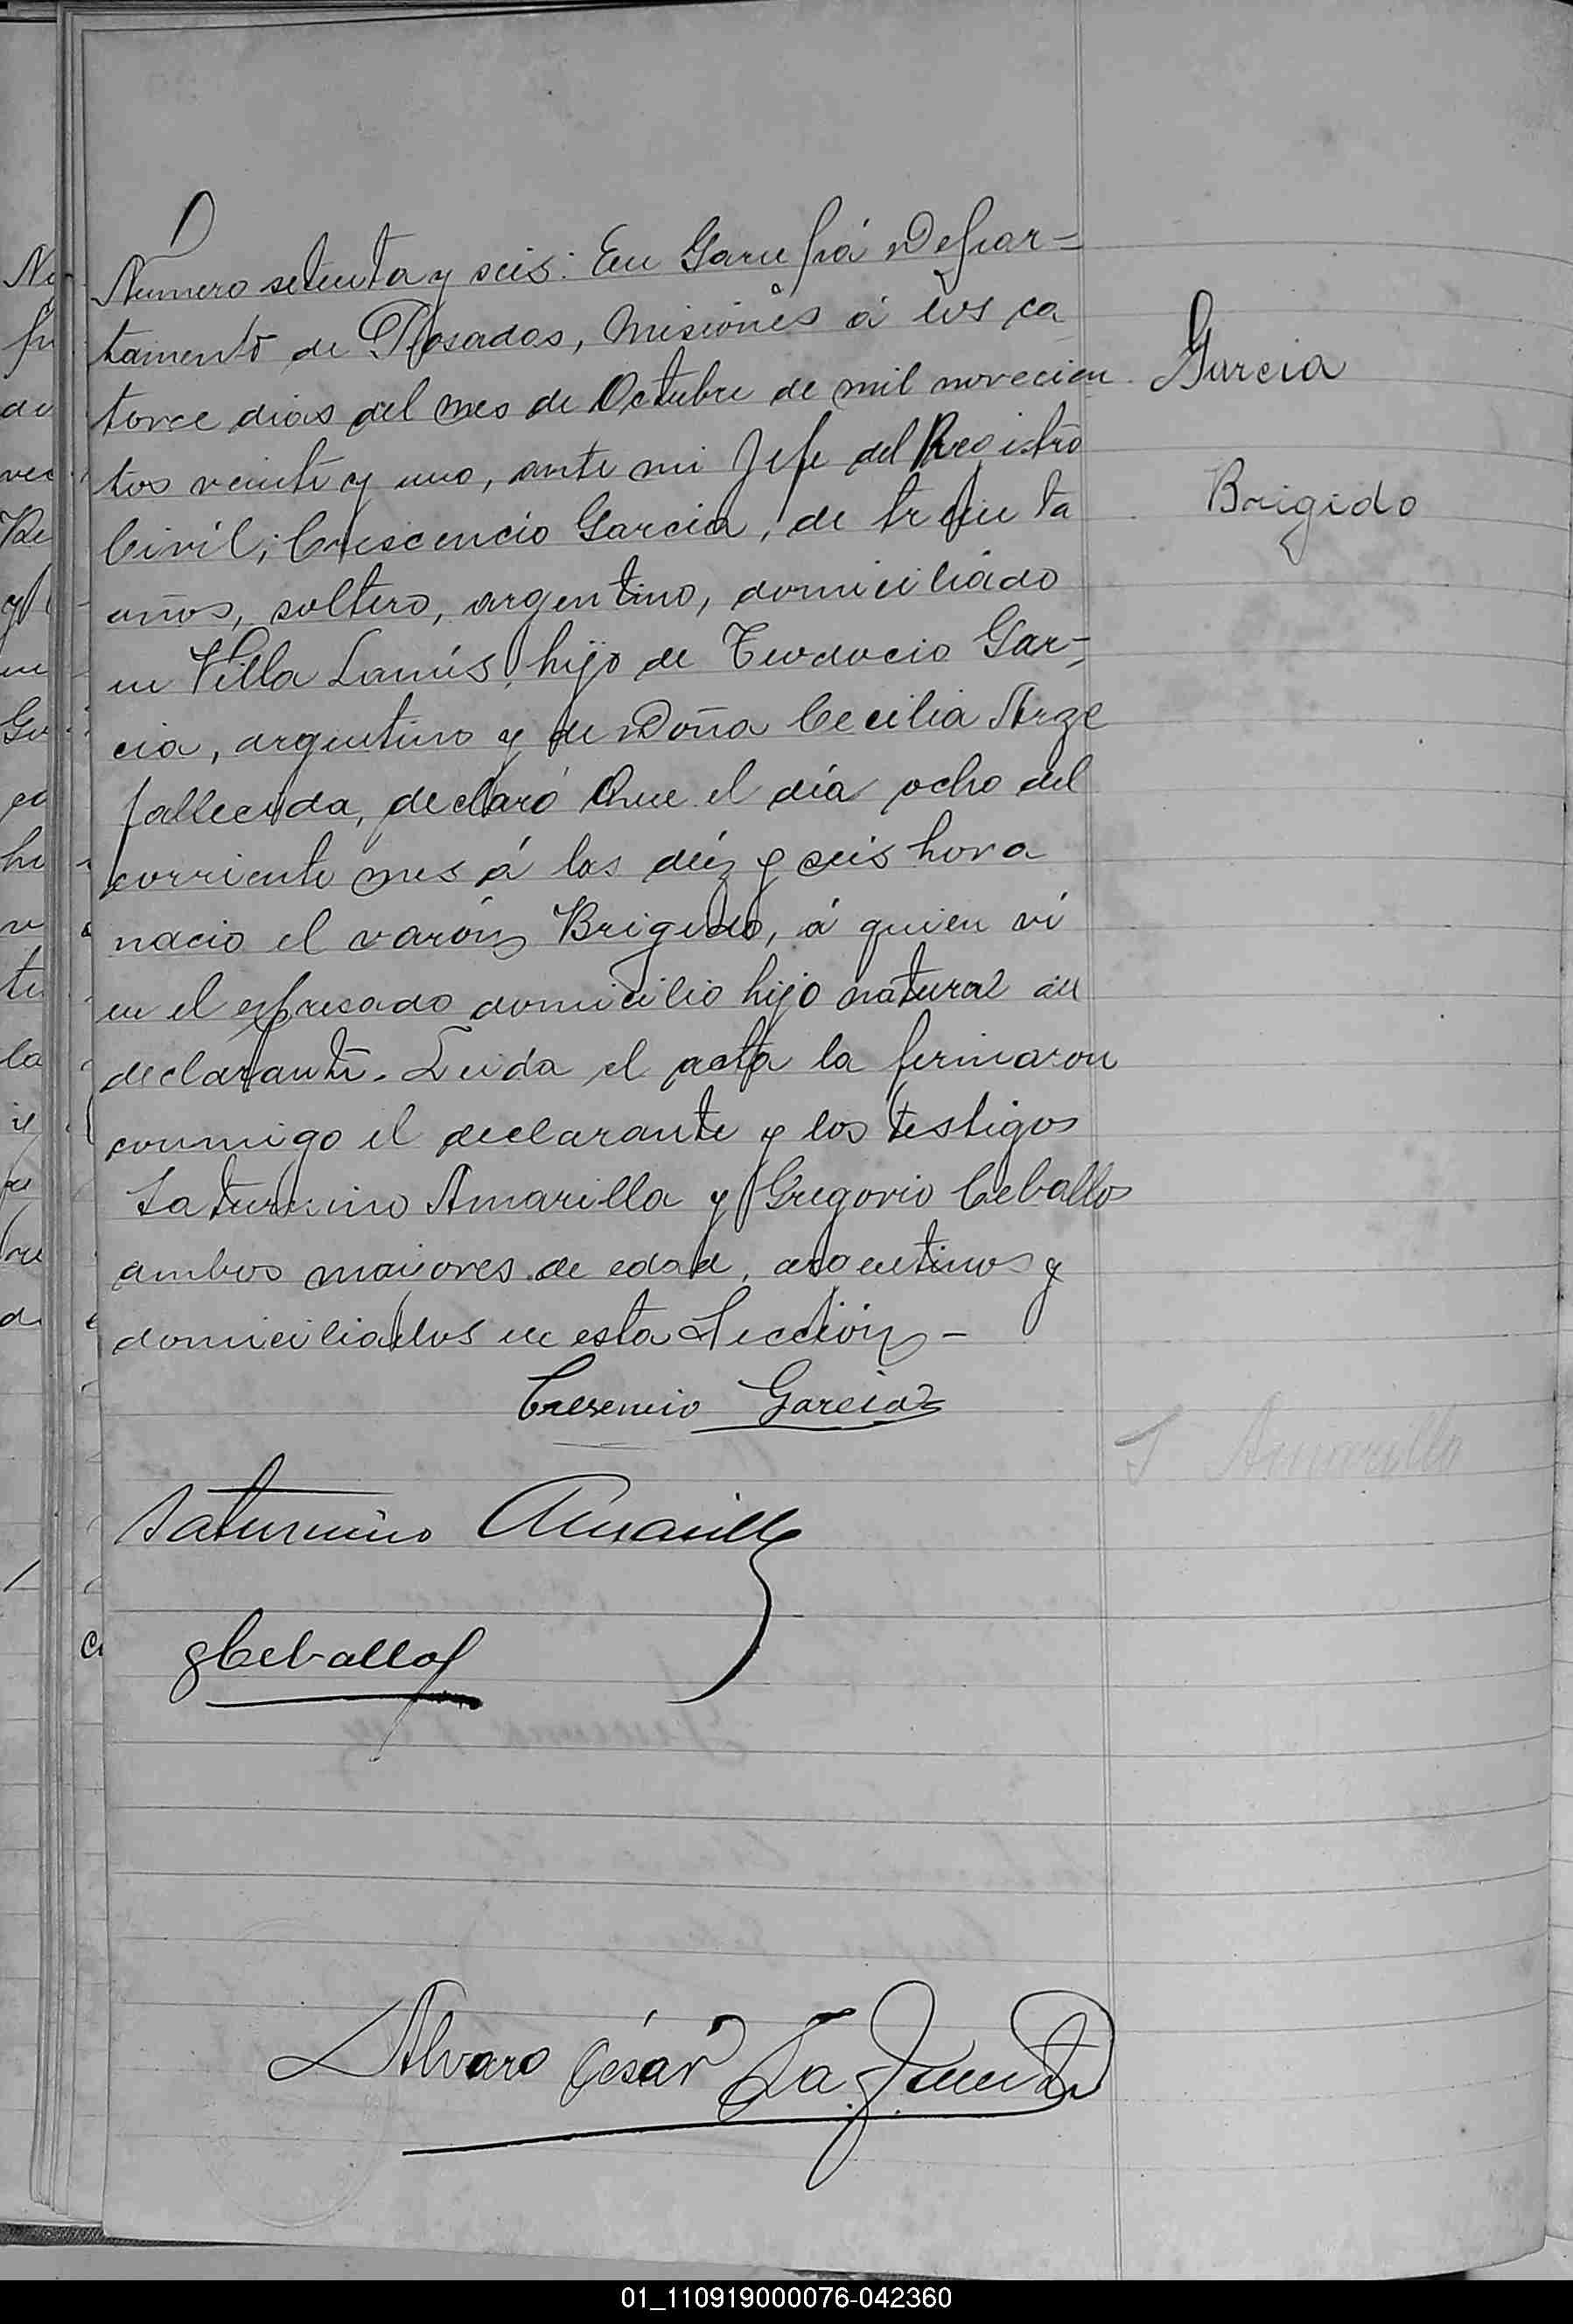 Numero setenta y seis: En Garupá Depar=
tamento de Posadas, Misiones á los ca
torce dias del mes de Octubre de mil novecien
Garcia
tos veinte y uno, ante mi Jefe del Registro
Brigido
Civil; Crescencio Garcia, de treinta
años, soltero, argentino, domiciliado
en Villa Lanús, hijo de Teodocio Gar=
cia, argentino y de Doña Cecilia Arze
fallecida, declaró Que el día ocho del
corriente mes á las diéz y seis hora
nacio el varón Brigido, á quien ví
en el expresado domicilio hijo natural del
declarante. Leida el acta la firmaron
conmigo el declarante y los testigos
Saturnino Amarilla y Gregorio Ceballos
ambos maiores de edad, argentinos y
domiciliados en esta Sección -
Cresencio Garcia
S Amarilla
Saturnino Amarilla
gCeballos
Alvaro César La
01_110919000076-042360